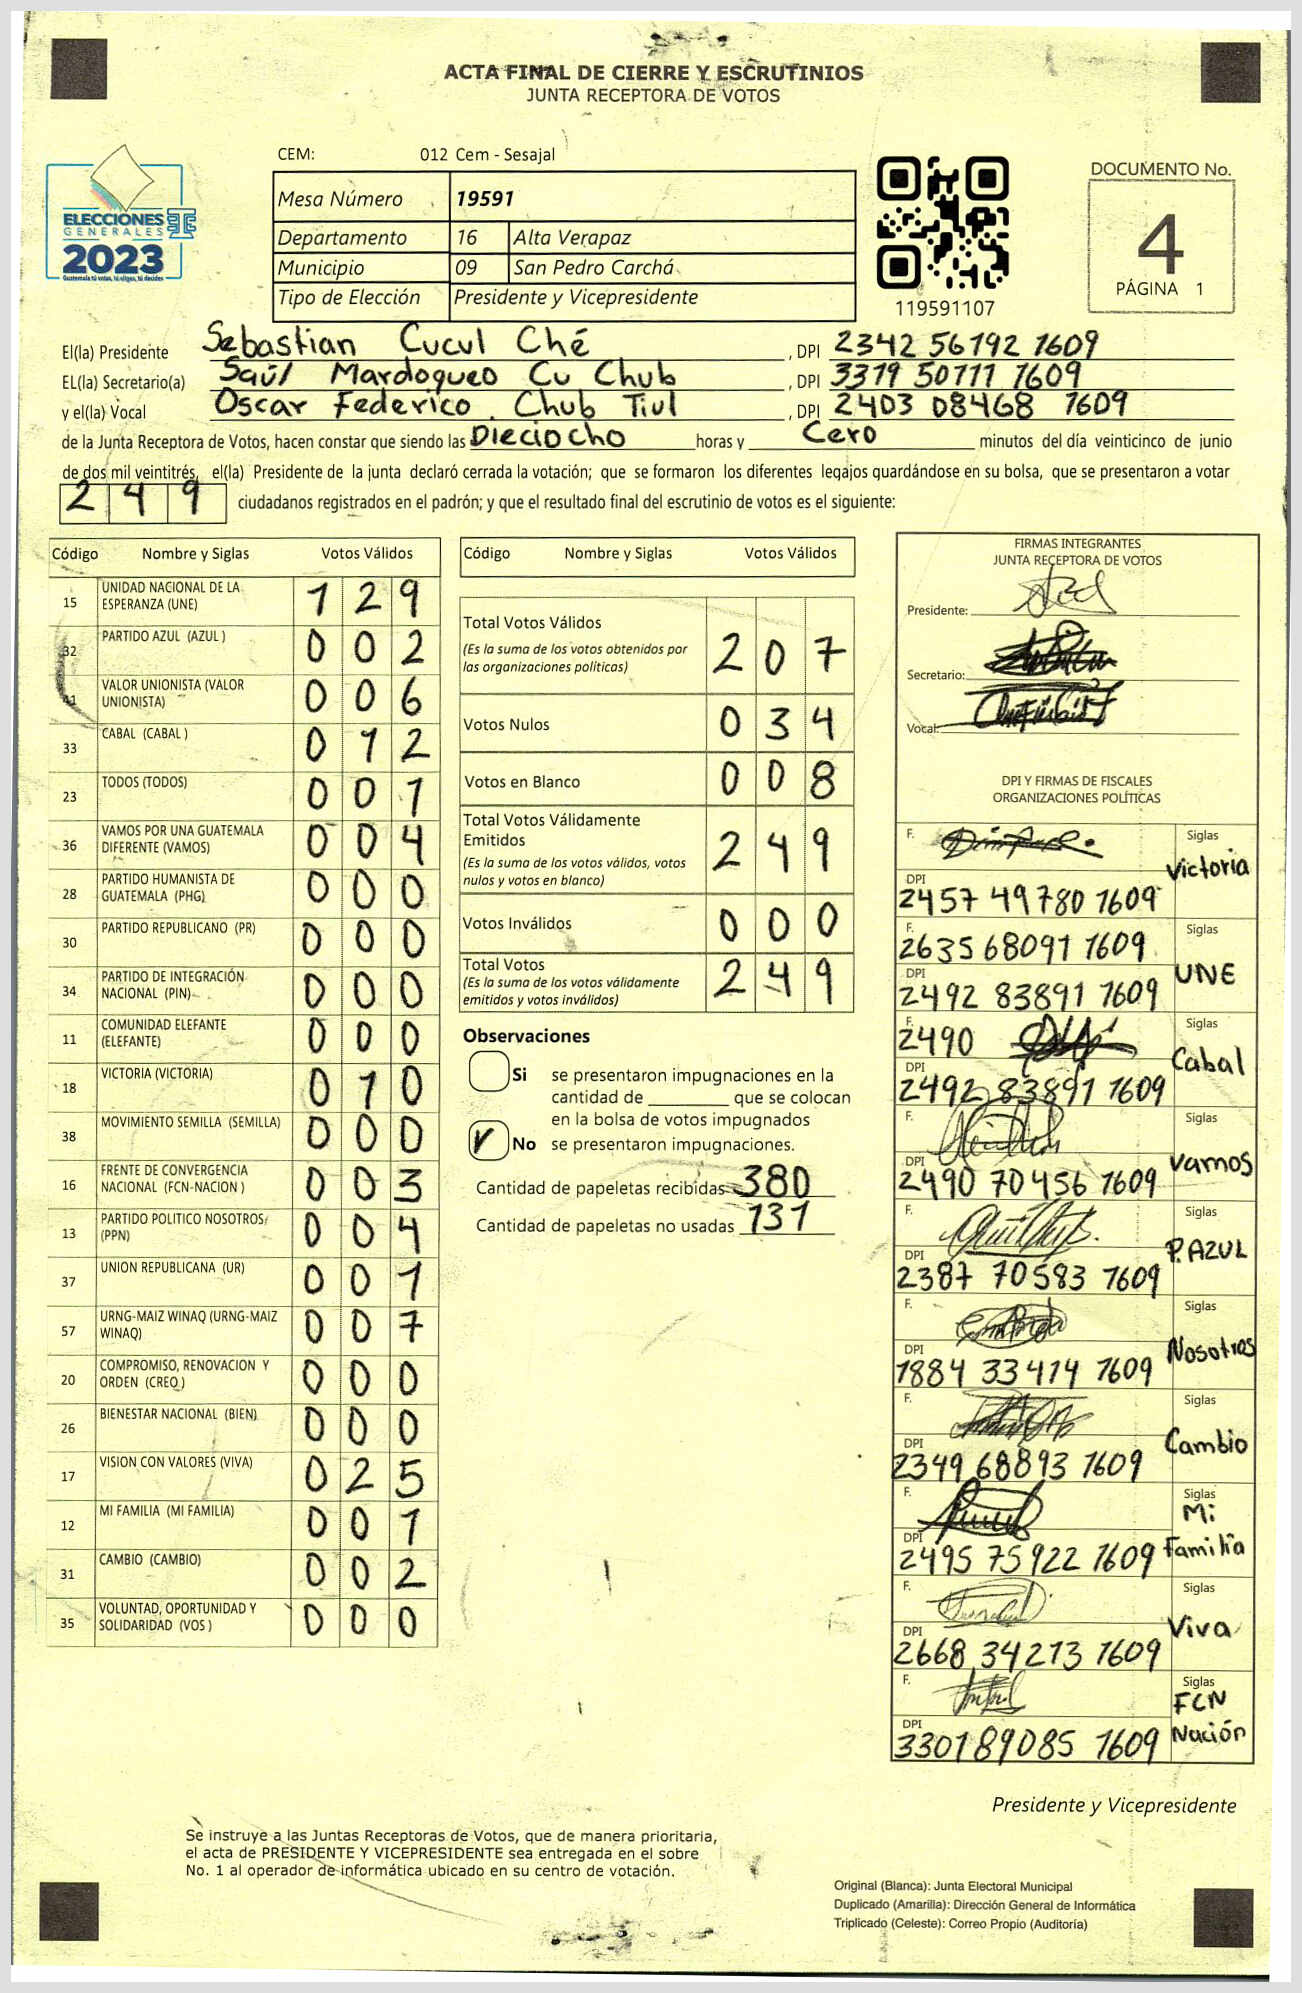 ACTA FINAL DE CIERRE Y ESCRUTINIOS
JUNTA RECEPTORA DE VOTOS
CEM: 012 Cem - Sesajal
DOCUMENTO No.
4
PÁGINA 1
ELECCIONES
GENERALES
2023
Guatemala tú votas, tú eliges, tú decides
Mesa Número 19591
Departamento 16 Alta Verapaz
Municipio 09 San Pedro Carchá
Tipo de Elección Presidente y Vicepresidente
119591107
El(la) Presidente Sebastian Cucul Ché , DPI 2342 56192 1609
EL(la) Secretario(a) Saúl Mardoqueo Cu Chub , DPI 3319 50111 1609
y el(la) Vocal Oscar Federico Chub Tiul , DPI 2403 08468 1609
de la Junta Receptora de Votos, hacen constar que siendo las Dieciocho horas y Cero minutos del día veinticinco de junio
de dos mil veintitrés, el(la) Presidente de la junta declaró cerrada la votación; que se formaron los diferentes legajos quardándose en su bolsa, que se presentaron a votar
249 ciudadanos registrados en el padrón; y que el resultado final del escrutinio de votos es el siguiente:
Código Nombre y Siglas Votos Válidos
15 UNIDAD NACIONAL DE LA ESPERANZA (UNE) 129
32 PARTIDO AZUL (AZUL ) 002
41 VALOR UNIONISTA (VALOR UNIONISTA) 006
33 CABAL (CABAL ) 012
23 TODOS (TODOS) 001
36 VAMOS POR UNA GUATEMALA DIFERENTE (VAMOS) 004
28 PARTIDO HUMANISTA DE GUATEMALA (PHG) 000
30 PARTIDO REPUBLICANO (PR) 000
34 PARTIDO DE INTEGRACIÓN NACIONAL (PIN) 000
11 COMUNIDAD ELEFANTE (ELEFANTE) 000
18 VICTORIA (VICTORIA) 010
38 MOVIMIENTO SEMILLA (SEMILLA) 000
16 FRENTE DE CONVERGENCIA NACIONAL (FCN-NACION ) 003
13 PARTIDO POLITICO NOSOTROS (PPN) 004
37 UNION REPUBLICANA (UR) 001
57 URNG-MAIZ WINAQ (URNG-MAIZ WINAQ) 007
20 COMPROMISO, RENOVACION Y ORDEN (CREO ) 000
26 BIENESTAR NACIONAL (BIEN) 000
17 VISION CON VALORES (VIVA) 025
12 MI FAMILIA (MI FAMILIA) 001
31 CAMBIO (CAMBIO) 002
35 VOLUNTAD, OPORTUNIDAD Y SOLIDARIDAD (VOS ) 000
Código Nombre y Siglas Votos Válidos
Total Votos Válidos 207
(Es la suma de los votos obtenidos por
las organizaciones políticas)
Votos Nulos 034
Votos en Blanco 008
Total Votos Válidamente
Emitidos 249
(Es la suma de los votos válidos, votos
nulos y votos en blanco)
Votos Inválidos 000
Total Votos 249
(Es la suma de los votos válidamente
emitidos y votos inválidos)
Observaciones
Si se presentaron impugnaciones en la
cantidad de ________ que se colocan
en la bolsa de votos impugnados
No se presentaron impugnaciones.
Cantidad de papeletas recibidas 380
Cantidad de papeletas no usadas 131
FIRMAS INTEGRANTES
JUNTA RECEPTORA DE VOTOS
Presidente:
Secretario:
Vocal:
DPI Y FIRMAS DE FISCALES
ORGANIZACIONES POLÍTICAS
F. Siglas
Victoria
DPI
2457 49780 1609
F. Siglas
2635 68091 1609
UNE
DPI
2492 83891 1609
F. Siglas
2490
Cabal
DPI
2492 83891 1609
F. Siglas
Vamos
DPI
2490 70456 1609
F. Siglas
P. AZUL
DPI
2387 70583 1609
F. Siglas
Nosotros
DPI
1884 33414 1609
F. Siglas
Cambio
DPI
2349 68893 1609
F. Siglas
Mi
Familia
DPI
2495 75922 1609
F. Siglas
Viva
DPI
2668 34213 1609
F. Siglas
FCN
Nación
DPI
3301 89085 1609
Presidente y Vicepresidente
Se instruye a las Juntas Receptoras de Votos, que de manera prioritaria,
el acta de PRESIDENTE Y VICEPRESIDENTE sea entregada en el sobre
No. 1 al operador de informática ubicado en su centro de votación.
Original (Blanca): Junta Electoral Municipal
Duplicado (Amarilla): Dirección General de Informática
Triplicado (Celeste): Correo Propio (Auditoría)